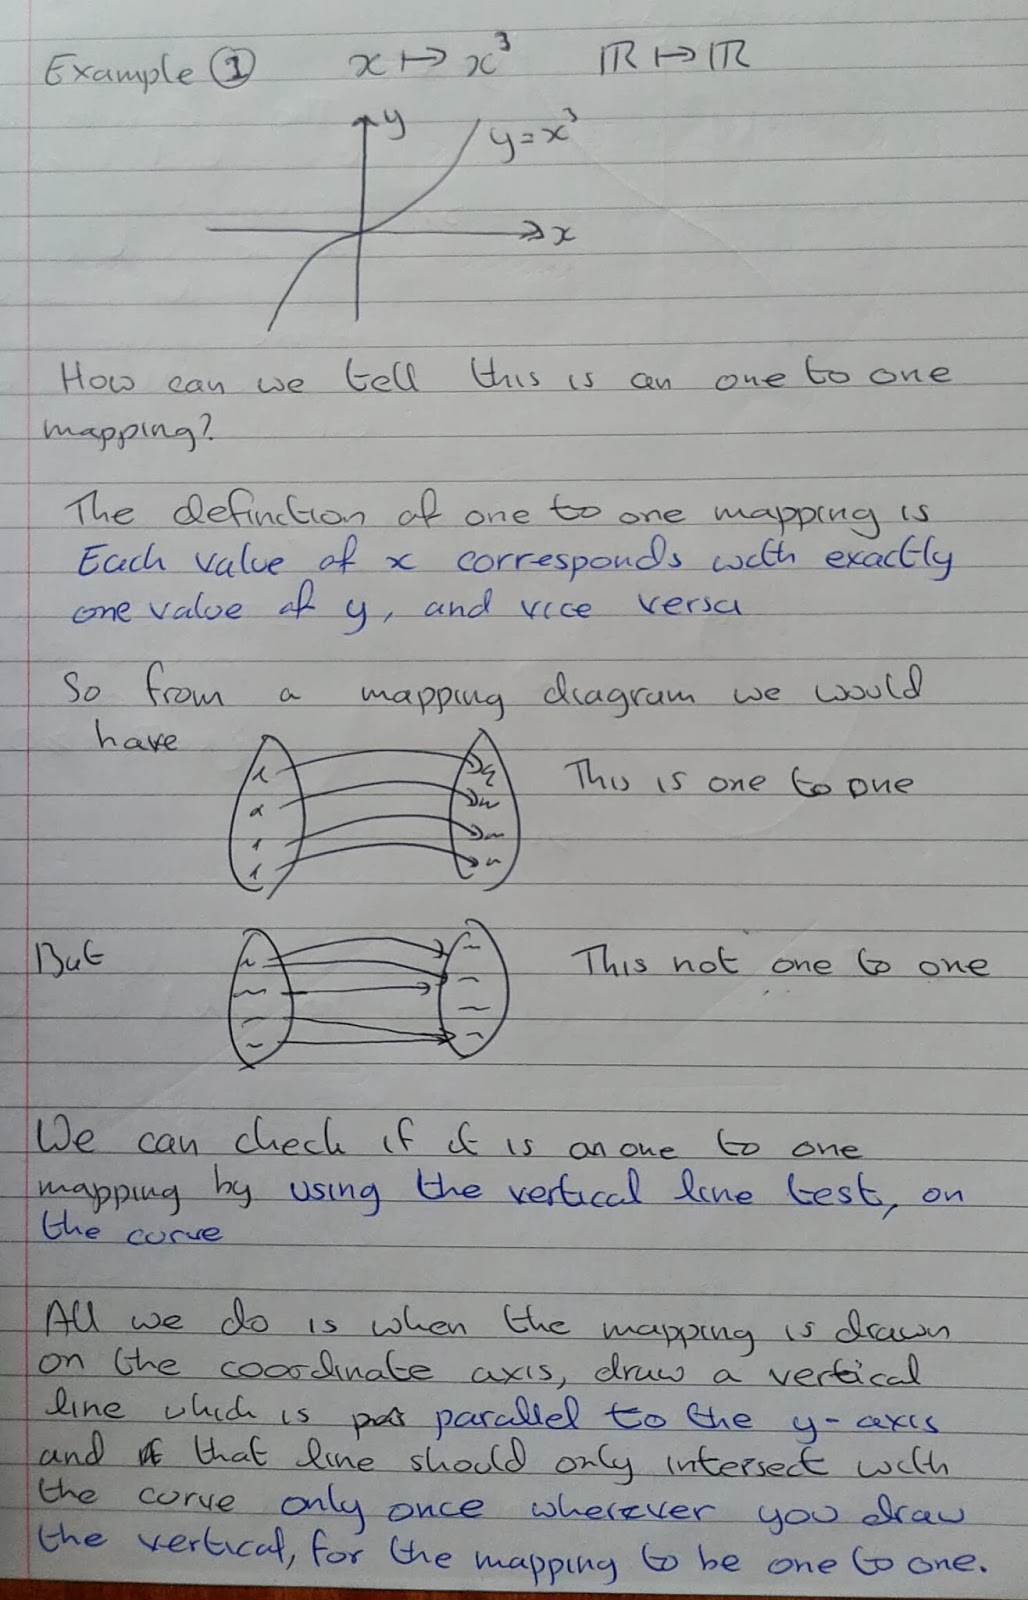 Example ① x ↦ x³ ℝ ↦ ℝ
y
y=x³
x
How can we tell this is an one to one
mapping?
The definition of one to one mapping is
Each value of x corresponds with exactly
one value of y, and vice versa
So from a mapping diagram we would
have
This is one to one
But
This not one to one
We can check if it is an one to one
mapping by using the vertical line test, on
the curve
All we do is when the mapping is drawn
on the coordinate axis, draw a vertical
line which is parallel to the y-axis
and that line should only intersect with
the curve only once wherever you draw
the vertical, for the mapping to be one to one.